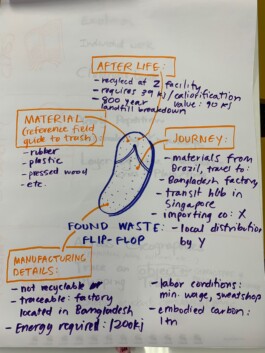 AFTER LIFE:
- recycled at Z facility
- requires 39 kJ / calorification
value: 90 kJ
- 800 year
landfill breakdown
MATERIAL
(reference field
guide to trash):
- rubber
- plastic
- pressed wood
- etc
JOURNEY:
- materials from
Brazil, travel to:
- Bangladesh factory
- transit hub in
Singapore
- importing co: X
- local distribution
by Y
FOUND WASTE:
FLIP-FLOP
MANUFACTURING
DETAILS:
- not recyclable
- traceable: factory
located in Bangladesh
- Energy required: 1200kj
- labor conditions:
min. wage, sweatshop
- embodied carbon:
1tn